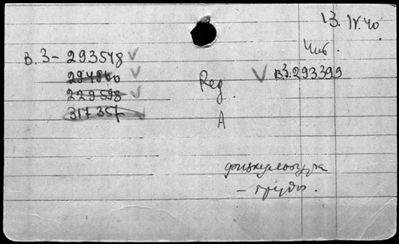 13. IV. 40
Чит.
В. 3 - 293548 ✓
294860 ✓
229598 ✓
317357
Reg.
✓ В3. 293399
A
физкультура
- труды.